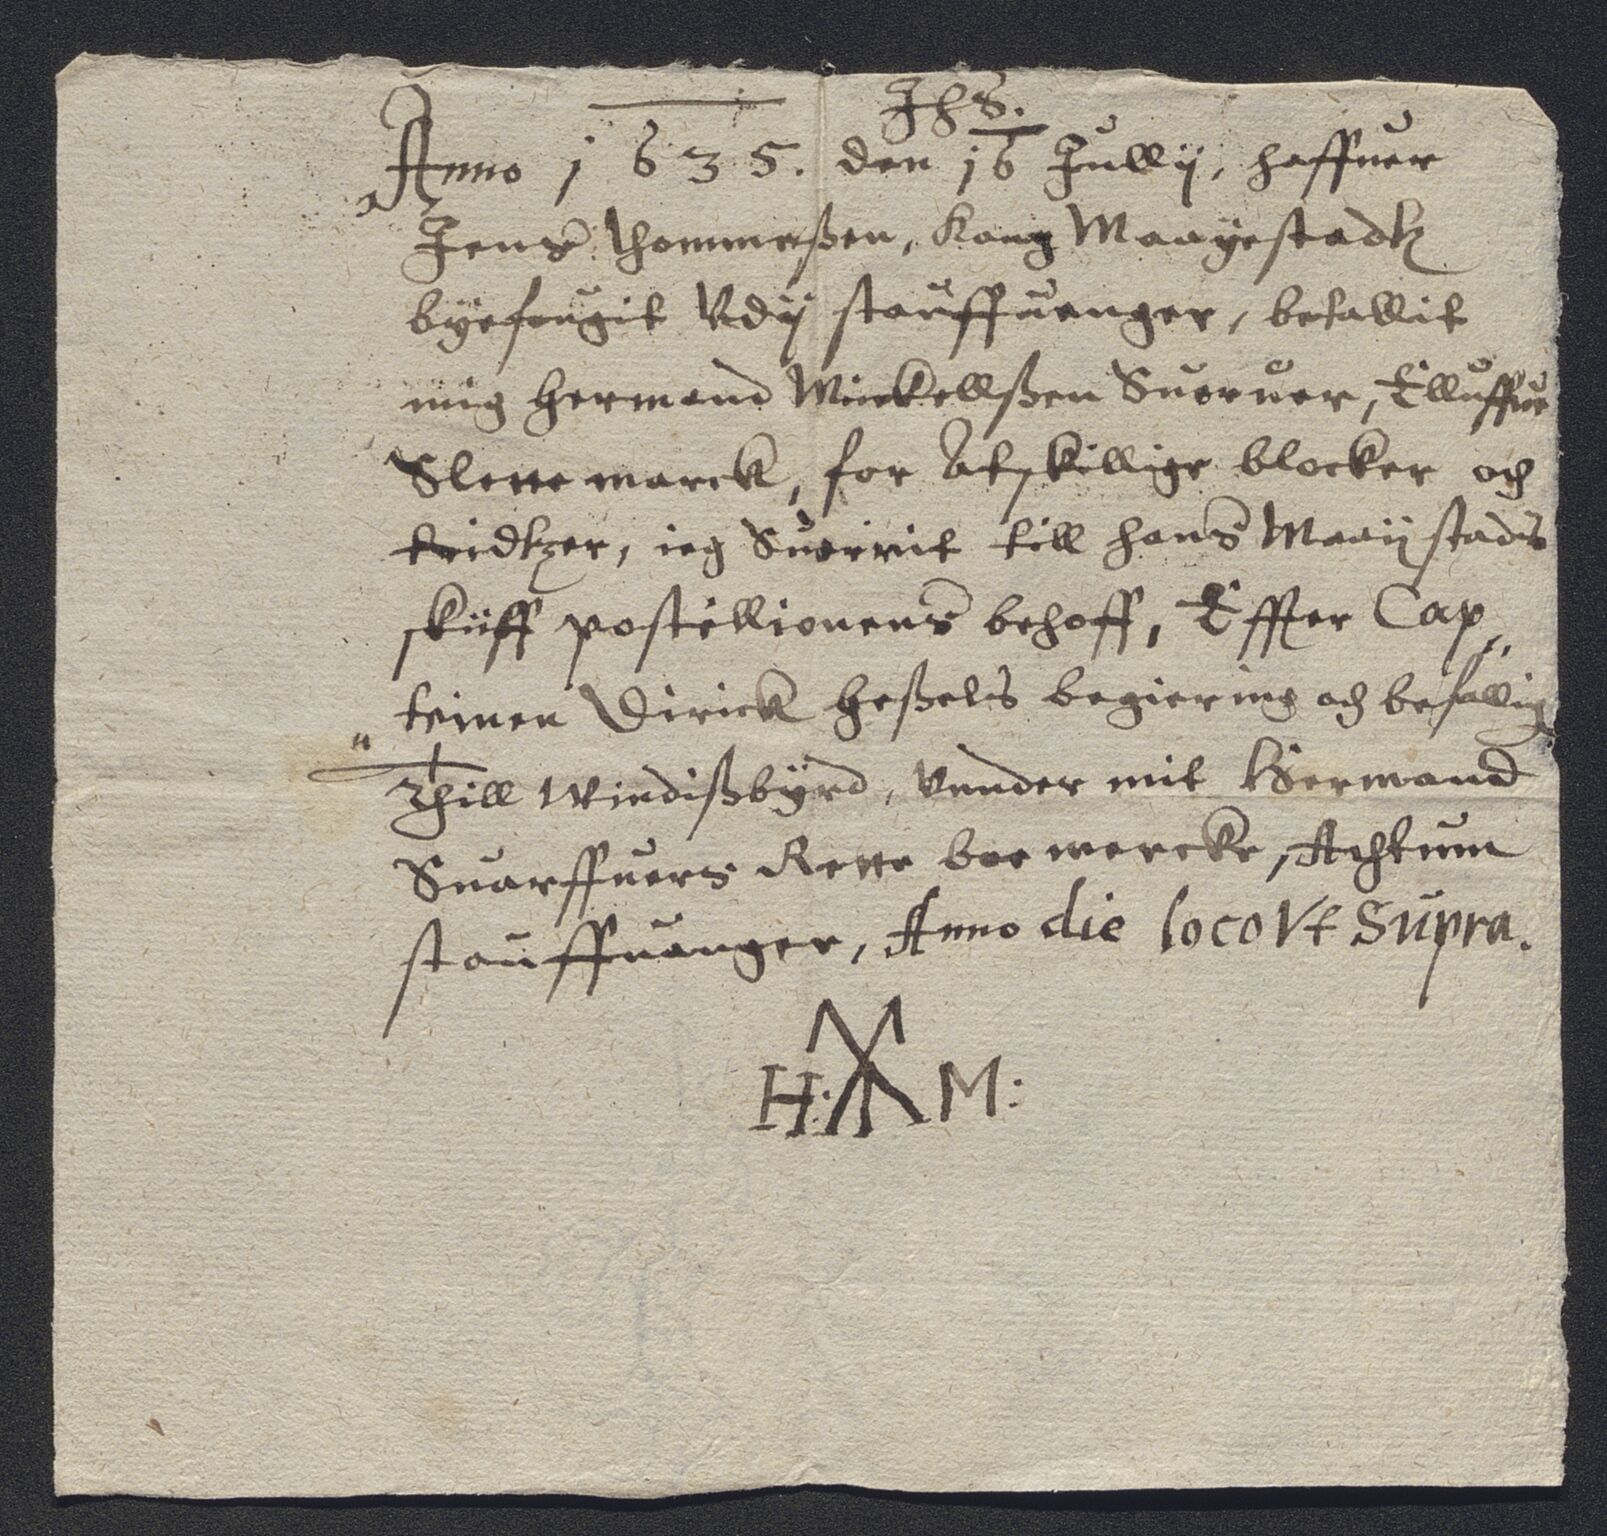 Jhs.
Anno 1635. den 16 Jullij, haffuer
Jens thommeßen, Kong Maayestadtz
byefougit Vdij stauffuenger, betallit
mig Hermand Mickellßen Suoruer, Elluffue
Slettemarck, for Atskillige blocker och
tridtzer, ieg Suorrit till hans Maaijstads
skiiff postellionens behoff, Effter Cap„
„teinen Dirick Heßels begiering och befallig
Thill Windißbyrd, Vunder mit Hermand
Suarffuers Rette boemercke, Achtum
stauffuanger, Anno die loco Vt Supra.
H: M: